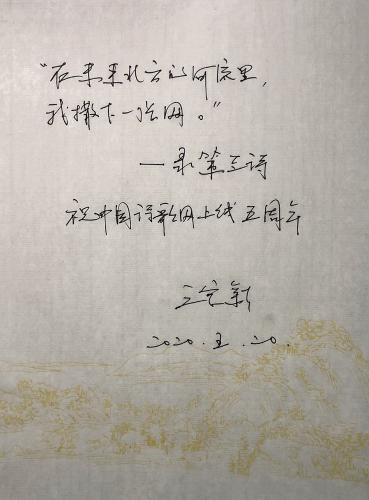 “在未来北方的河流里,
我撒下一张网。”
—录策兰诗
祝中国诗歌网上线五周年
王家新
2020.5.20.